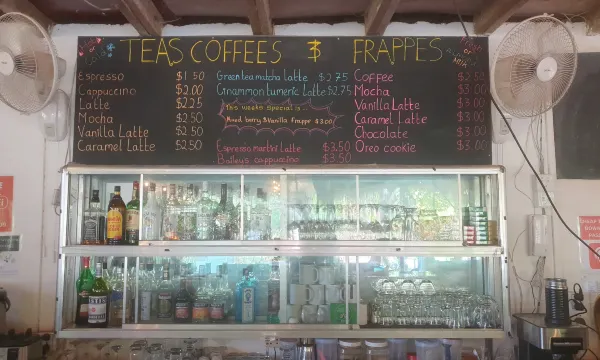 TEAS COFFEES $ FRAPPES
Espresso $1.50
Cappucino $2.00
Latte $2.25
Mocha $2.50
Vanilla Latte $2.50
Caramel Latte $2.50
Green tea matcha Latte $2.75
Cinnamon tumeric Latte $2.75
This weeks special is...
Mixed berry & Vanilla frappe $3.00
Espresso martini latte $3.50
Baileys cappuccino $3.50
Coffee $2.50
Mocha $3.00
Vanilla Latte $3.00
Caramel Latte $3.00
Chocolate $3.00
Oreo cookie $3.00